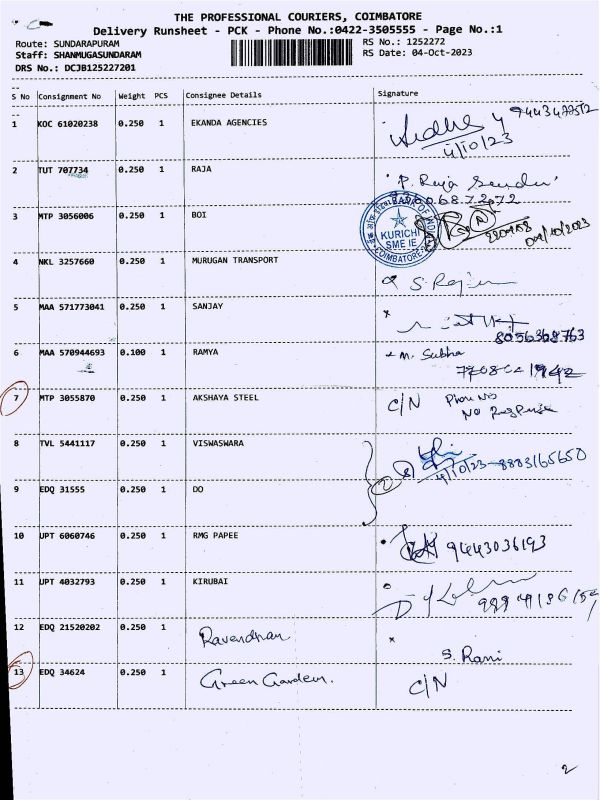 THE PROFESSIONAL COURIERS, COIMBATORE
Delivery Runsheet - PCK - Phone No.:0422-3505555 - Page No.:1
Route: SUNDARAPURAM RS No.: 1252272
Staff: SHANMUGASUNDARAM RS Date: 04-Oct-2023
DRS No.: DCJB125227201
S No Consignment No Weight PCS Consignee Details Signature
1 KOC 61020238 0.250 1 EKANDA AGENCIES
4/10/23
2 TUT 707734 0.250 1 RAJA P. Raja
3 MTP 3056006 0.250 1 BOI
BANK OF INDIA
KURICHI
SME IE
COIMBATORE
04/10/2023
4 NKL 3257660 0.250 1 MURUGAN TRANSPORT
5 MAA 571773041 0.250 1 SANJAY x
8056368763
6 MAA 570944693 0.100 1 RAMYA M. Subha
7 MTP 3055870 0.250 1 AKSHAYA STEEL C/N Phone No
No Response
8 TVL 5441117 0.250 1 VISWASWARA
4/10/23 8883165650
9 EDQ 31555 0.250 1 DO
10 UPT 6060746 0.250 1 RMG PAPEE 9443036193
11 UPT 4032793 0.250 1 KIRUBAI
12 EDQ 21520202 0.250 1 Ravendhran x
S. Rani
13 EDQ 34624 0.250 1 Green Garden. C/N
2